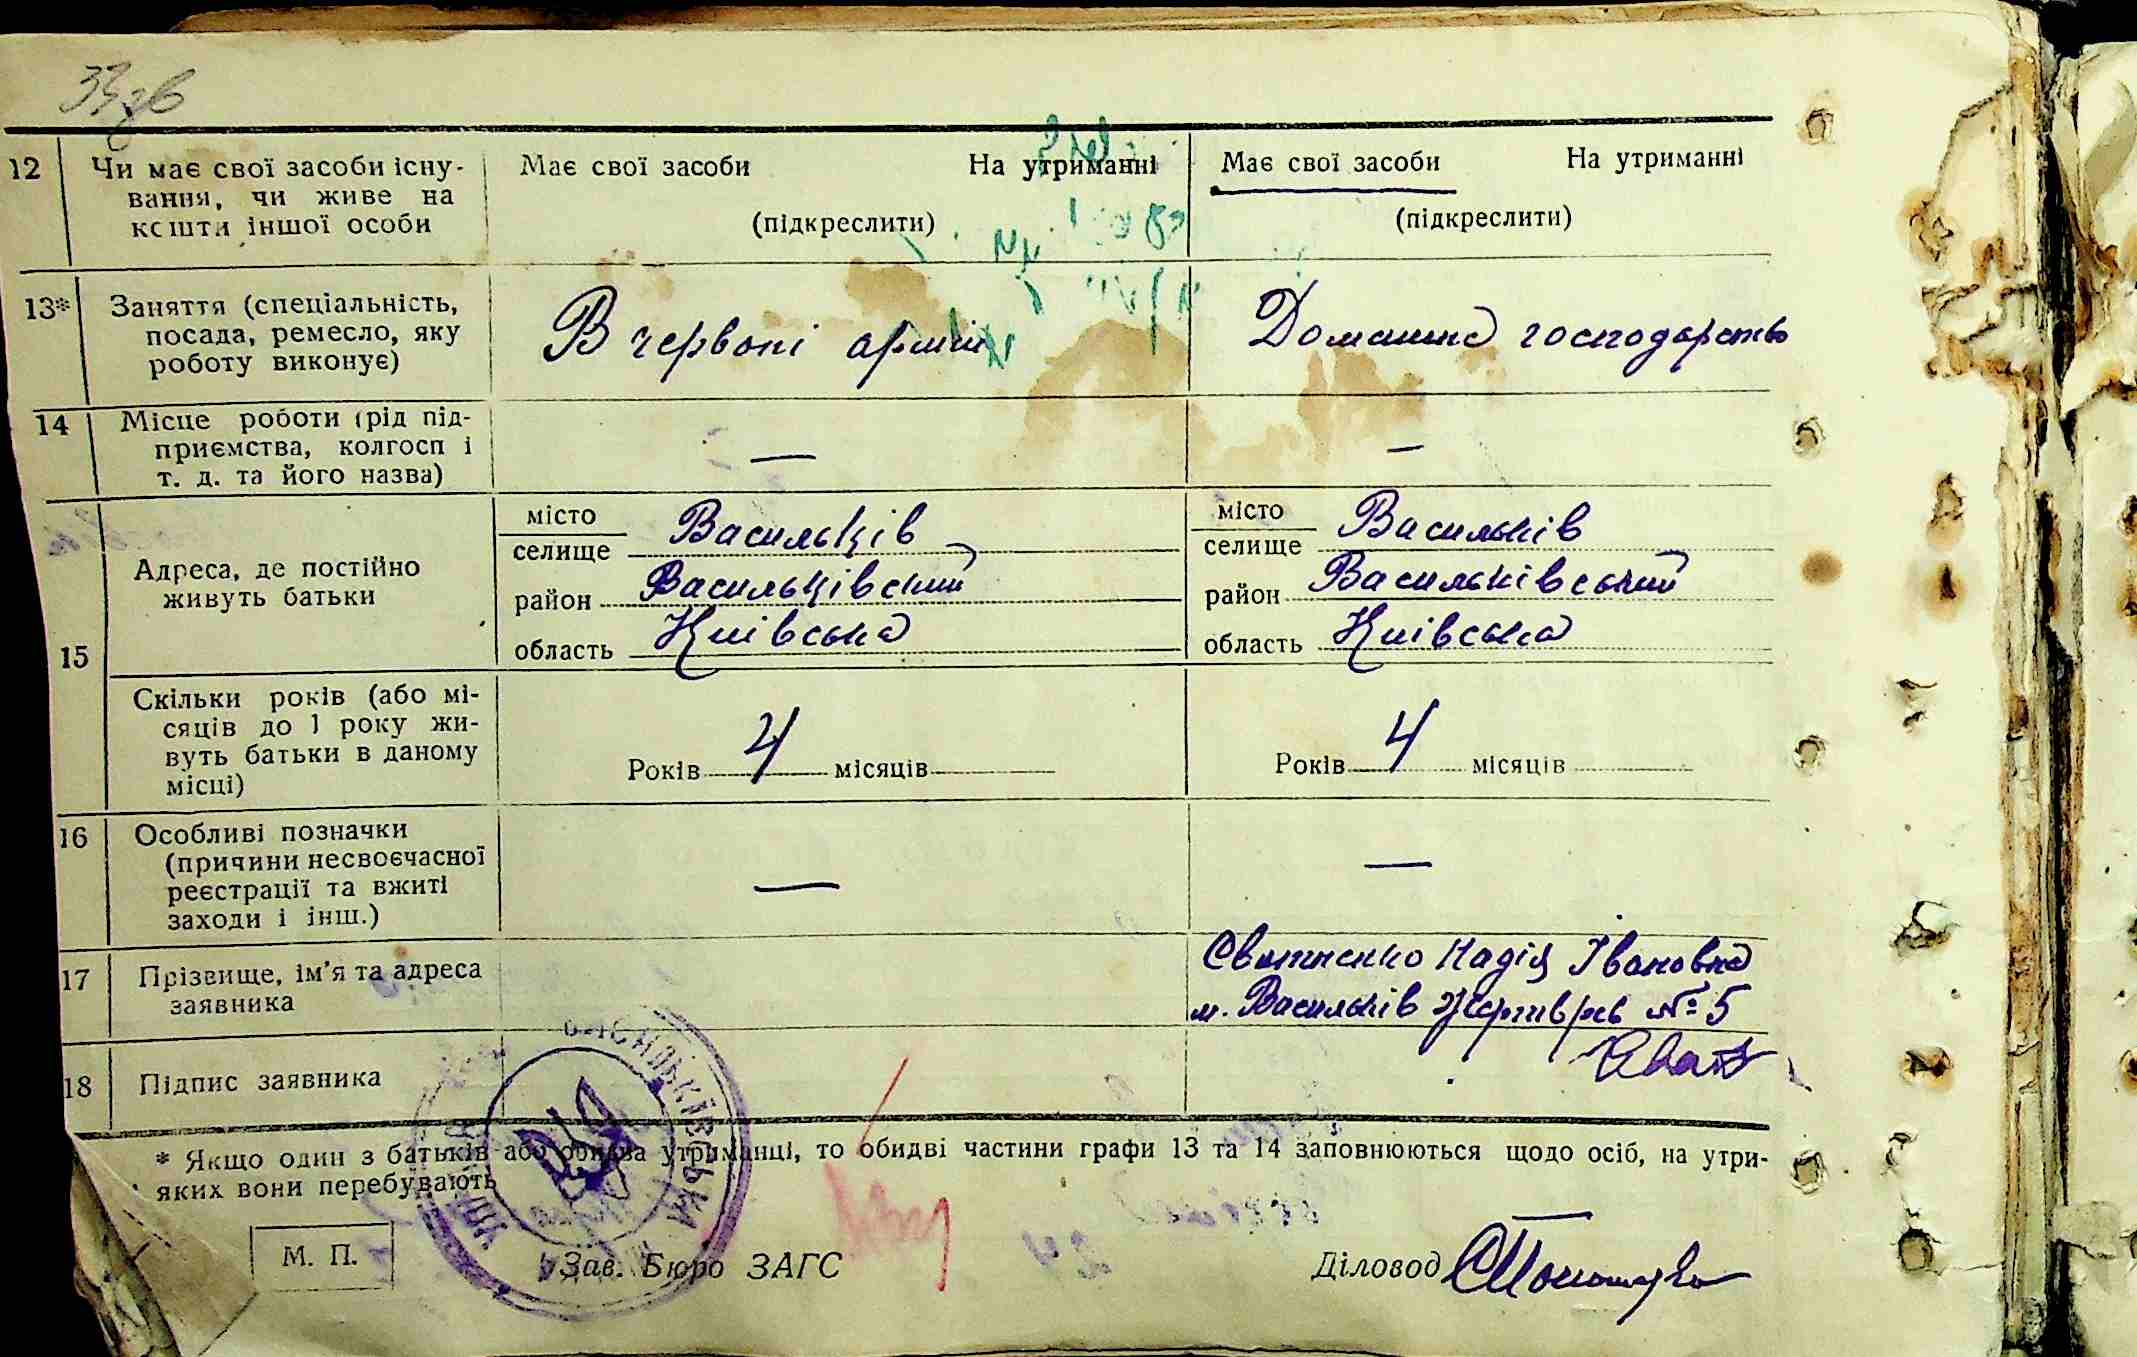 33зв
12 Чи має свої засоби існу- Має свої засоби На утриманні Має свої засоби На утриманні
вання, чи живе на
кошти іншої особи (підкреслити) (підкреслити)
13* Заняття (спеціальність,
посада, ремесло, яку В червоні армії Домашнє господарство
роботу виконує)
14 Місце роботи (рід під-
приємства, колгосп і — —
т. д. та його назва)
місто Васильків місто Васильків
селище селище
15 Адреса, де постійно
живуть батьки район Васильківський район Васильківський
область Київська область Київська
Скільки років (або мі-
сяців до 1 року жи-
вуть батьки в даному Років 4 місяців Років 4 місяців
місці)
16 Особливі позначки
(причини несвоєчасної — —
реєстрації та вжиті
заходи і інш.)
17 Прізвище, ім'я та адреса Надія Івановна
заявника м. Васильків №5
18 Підпис заявника
* Якщо один з батьків або обидва утриманці, то обидві частини графи 13 та 14 заповнюються щодо осіб, на утри-
яких вони перебувають
М. П. Зав. Бюро ЗАГС Діловод